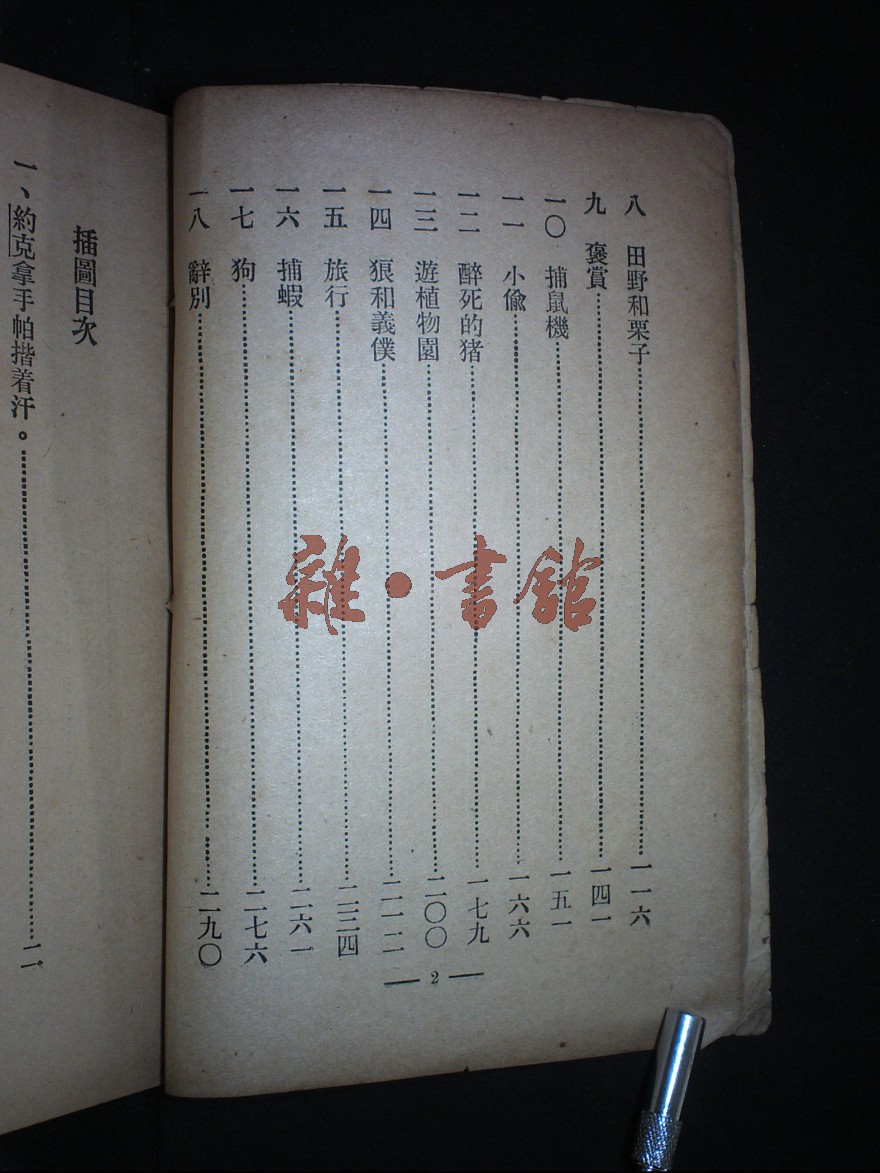 八 田野和栗子……一一六
九 褒賞……一四一
一〇 捕鼠機……一五一
一一 小偸……一六六
一二 醉死的猪……一七九
一三 遊植物園……二〇〇
一四 狼和義僕……二一二
一五 旅行……二三四
一六 捕蝦……二六一
一七 狗……二七六
一八 辭別……二九〇
— 2 —
插圖目次
一、約克拿手帕揩着汗。……二
雜·書館